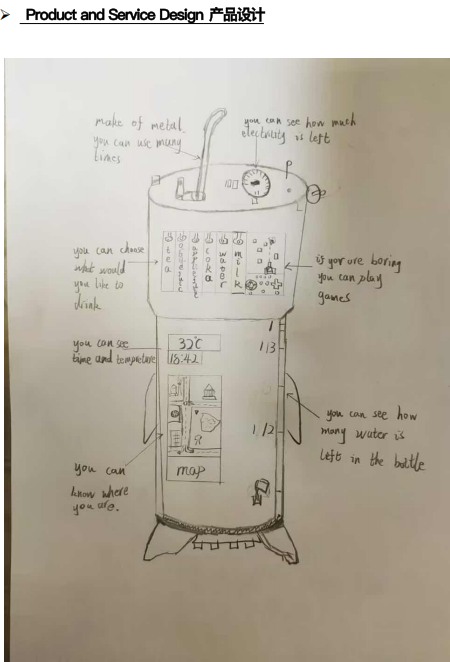 ➢ Product and Service Design 产品设计
make of metal.
you can use many
times
you can see how much
electricity is left
P
L
you can choose
what would
you like to
drink
tea
coka
water
milk
if your are boring
you can play
games
you can see
time and tempreture
32℃
15:42
1
1/3
1/2
map
you can
know where
you are.
you can see how
many water is
left in the bottle